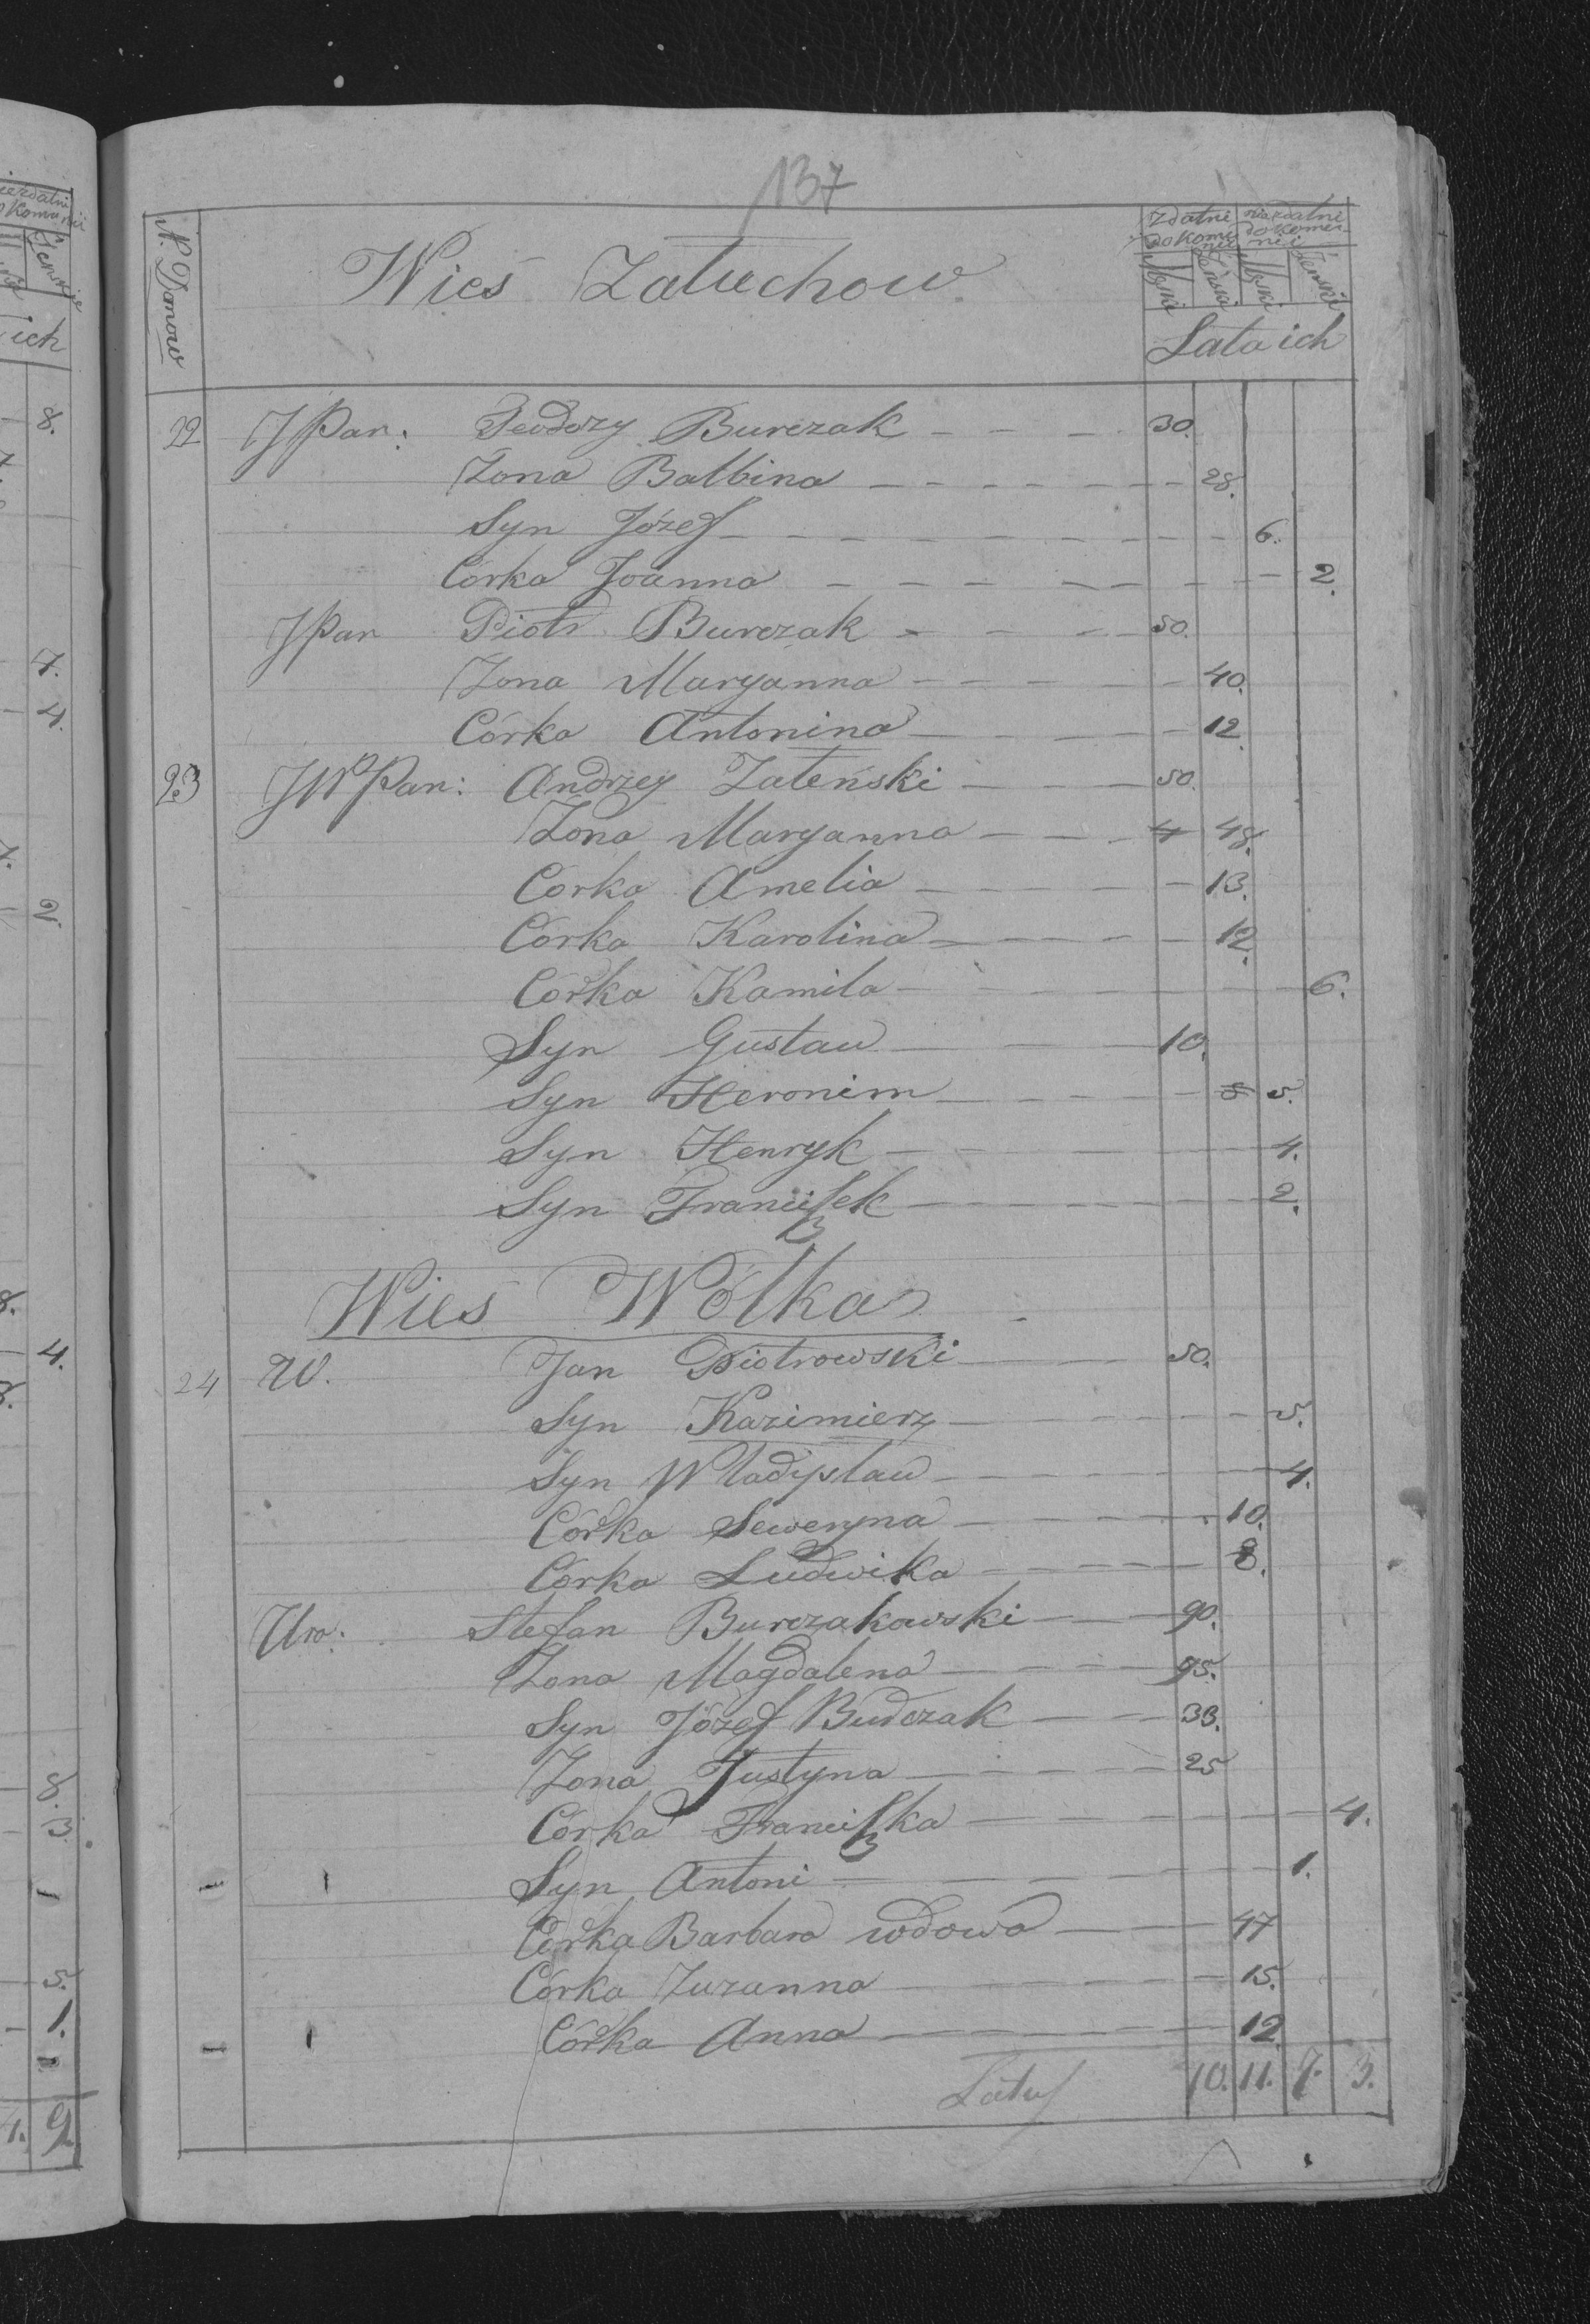 137
N. Domow
Wies Zaluchow
zdatni do Komunii
niezdatni do Komunii
Męskie Żeńskie Męskie Żeńskie
Lata ich
22 JPan: Teodozy Burczak - - - 30.
Zona Balbina - - - 28.
Syn Józef - - - 6.
Córka Joanna - - - 2.
JPan Piotr Burczak - - - 50.
Zona Maryanna - - - 40.
Córka Antonina - - - 12
23 JWPan: Andrzey Zateński - - - 50.
Zona Maryanna - - - 4 48.
Corka Amelia - - - 13.
Córka Karolina - - - 12.
Córka Kamila - - - 6.
Syn Gustaw - - - 10.
Syn Heronim - - - 5 5.
Syn Henryk - - - 4.
Syn Franciszek - - - 2.
Wies Wólka
24 W. Jan Piotrowski - - - 50.
Syn Kazimierz - - - 5.
Syn Władysław - - - 4.
Córka Seweryna - - - 10.
Córka Ludwika - - - 8.
Uro: Stefan Burczakowski - - - 90.
Zona Magdalena - - - 95.
Syn Józef Budczak - - - 33.
Zona Justyna - - - 25
Córka Franciszka - - - 4.
Syn Antoni - - - 1.
Córka Barbara wdowa - - - 47
Córka Zuzanna - - - 15.
Córka Anna - - - 12
Latus 10. 11. 7. 3.